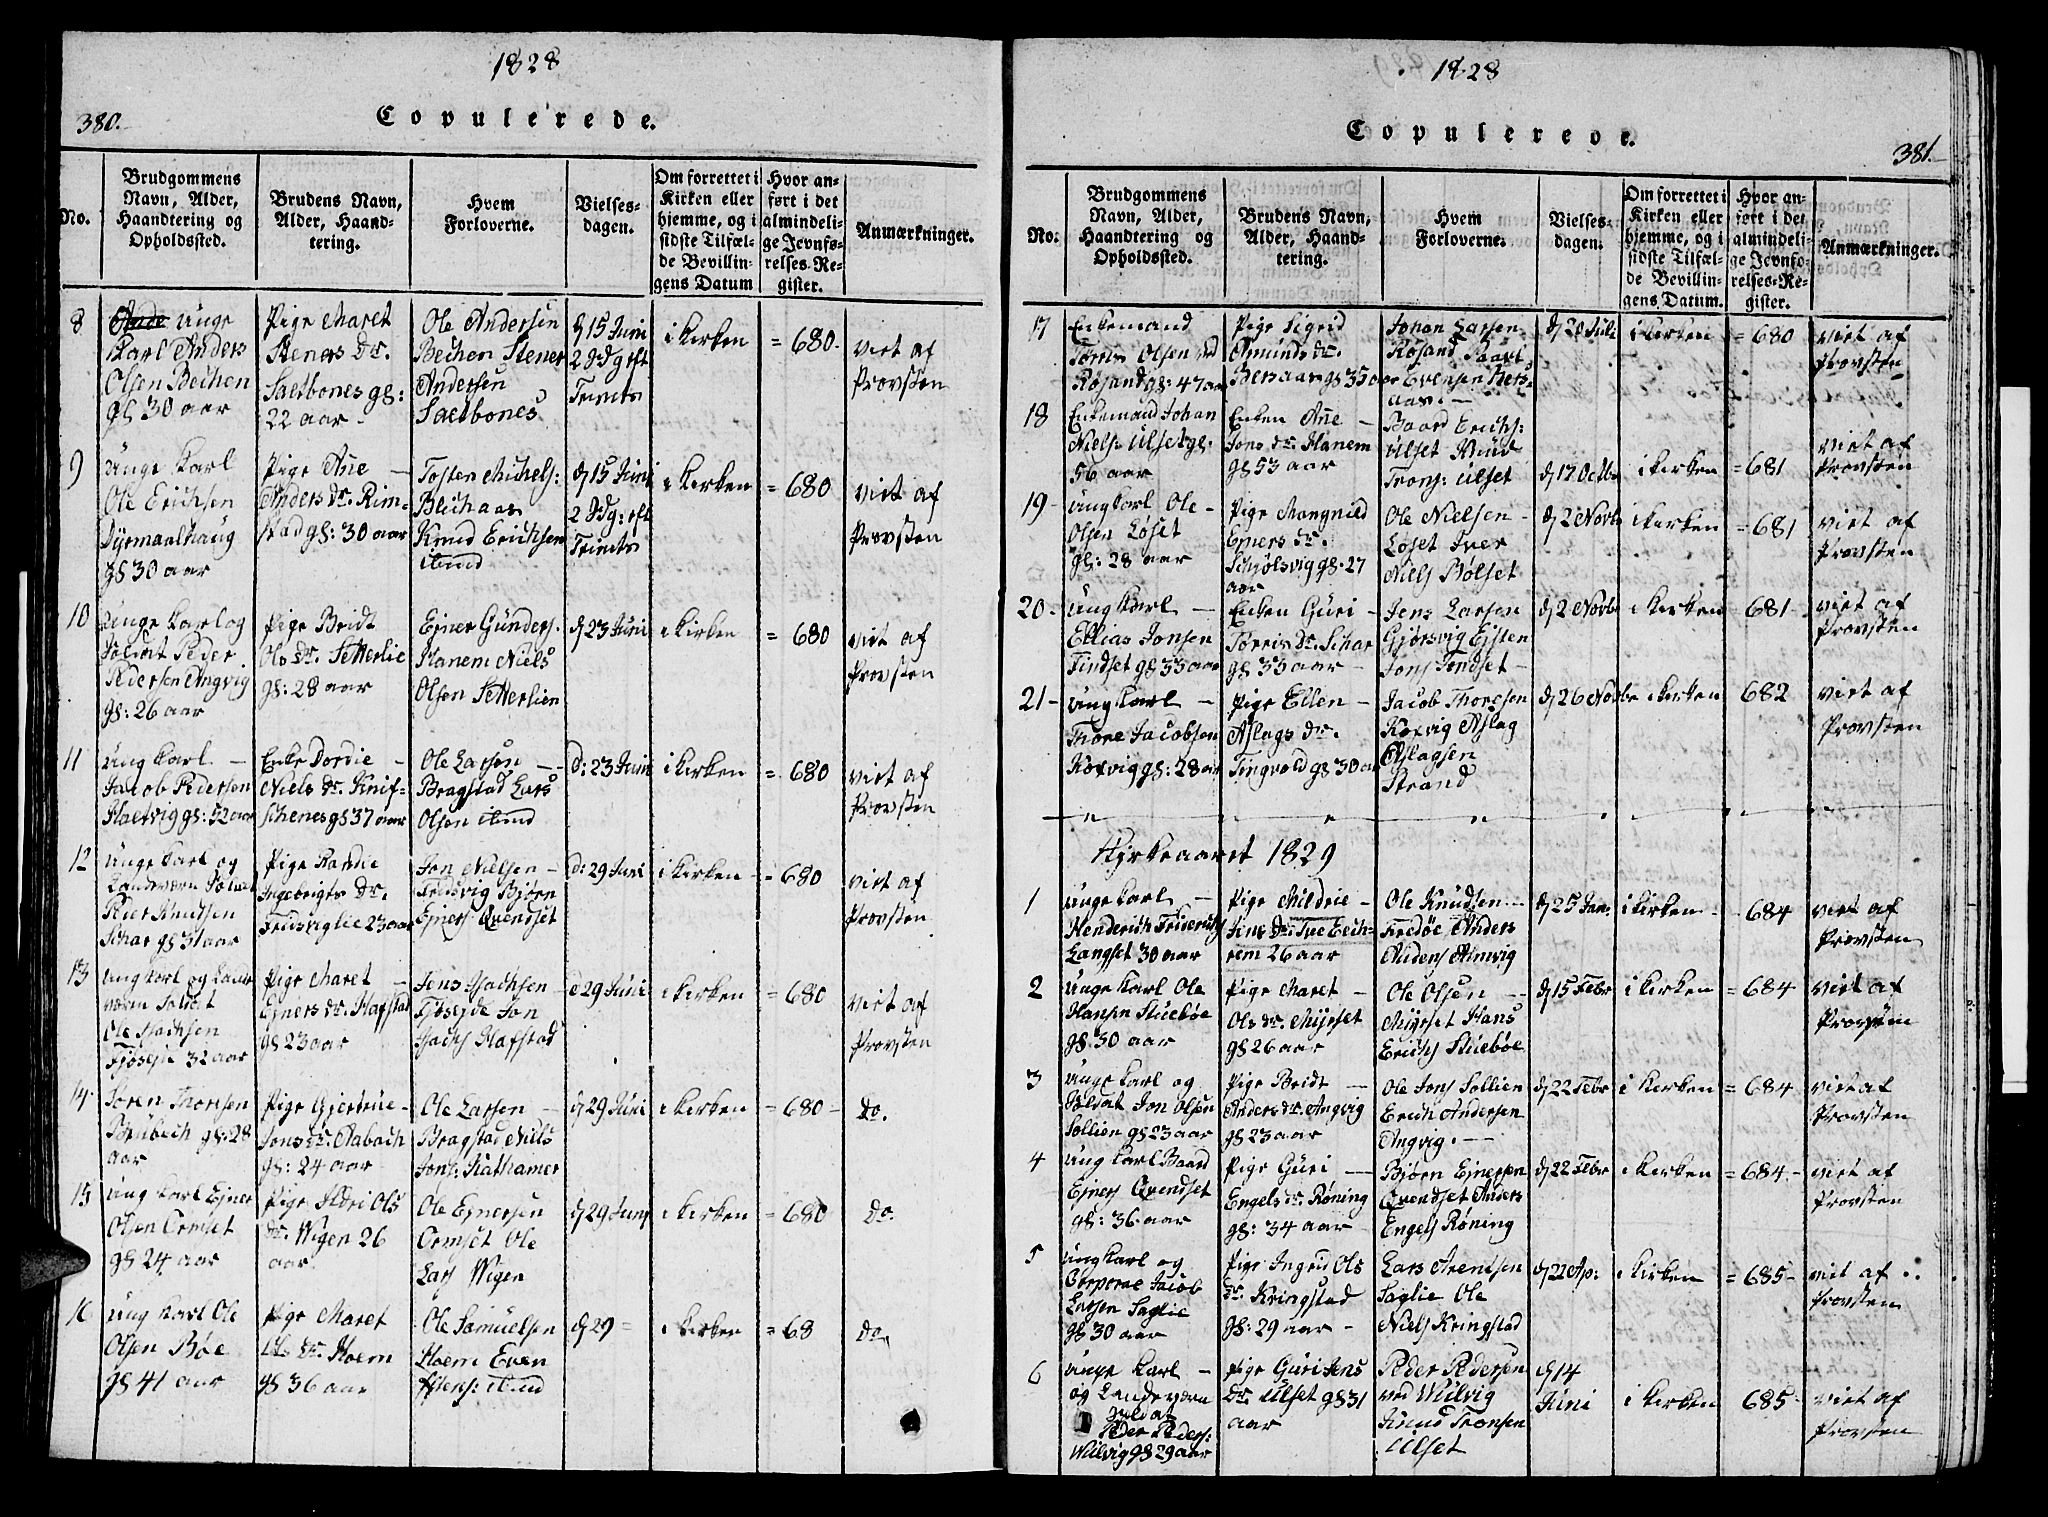 1828
380.
Copulerede.
No.
Brudgommens Navn, Alder, Haandtering og Opholdssted.
Brudens Navn, Alder, Haandtering.
Hvem Forloverne.
Vielsesdagen.
Om forrettet i Kirken eller hjemme, og i sidste Tilfælde Bevillingens Datum
Hvor anført i det almindelige Jevnførelses-Register.
Anmærkninger.
8
unge Karl Anders Olsen Bechen gl 30 aar
Pige Maret Steners Dr. Saetbones gl: 22 aar
Ole Andersen Bechen Stener Andersen Saetbones
d 15 Juni 2 Sdg eft Trinits
i Kirken
= 680.
viet af Provsten
9
unge Karl Ole Erichsen Dyrmaalhaug gl 30 aar
Pige Ane Anders Dr. Rimstad gl: 30 aar
Tosten Michels: Blichaas Knud Erichsen ibmd
d 15 Juni 2 Sdg: eft Trinits
i Kirken
= 680
viet af Provsten
10
Unge Karl og Soldat Peder Pedersen Angvig gl: 26 aar
Pige Bridt Ols Dr. Setterlie gl: 28 aar
Ejner Gunders. Hanem Niels Olsen Setterlien
d 23 Juni
i Kirken
= 680
viet af Provsten
11
ung Karl Jacob Pedersen Flaetvig gl: 52 aar
Enke Dordie Niels Dr. Knifschenes gl 37 aar
Ole Larsen Bragstad Lars Olsen ibmd
d: 23 Juni
i Kirken
= 680
viet af Provsten
12
Unge Karl og Landeværn Soldat Peder Knudsen Schar gl 31 aar
Pige Randie Ingebrigts Dr. Fredsviglie 23 aar
Jon Nielsen Fredsvig Bjørn Ejners Qvendset
d: 29 Juni
i Kirken
= 680
viet af Provsten
13
ung Karl og Landeværn Soldat Ole Isachsen Fjøseje 32 aar
Pige Maret Ejners Dr. Hafstad gl 23 aar
Jens Isachsen Fjøsejde Jon Isachs Hafstad
d 29 Juni
i Kirken
= 680
viet af Provsten
14
Søren Thoresen Brubech gl: 28 aar
Pige Gjertrue Jons Dr. Aabach gl: 24 aar
Ole Larsen Bragstad Niels Jons: Kathamer
d 29 Juni
i Kirken
= 680
Do.
15
Ung Karl Ejner Olsen Ormset gl 24 aar
Pige Sldri Ols Dr. Wigen 26 aar
Ole Ejnersen Ormset Ole Lars Wigen
d 29 Juni
i Kirken
= 680
Do.
16
Ung Karl Ole Olsen Bøe gl 41 aar
Pige Maret Ols Dr. Hoem gl 36 aar
Ole Samuelsen Hoem Even ibmd
d 29 =
i Kirken
= 68
Do.
1828
381.
Copulerede.
No.
Brudgommens Navn, Alder, Haandtering og Opholdssted.
Brudens Navn, Alder, Haandtering.
Hvem Forloverne.
Vielsesdagen.
Om forrettet i Kirken eller hjemme, og i sidste Tilfælde Bevillingens Datum.
Hvor anført i det almindelige Jevnførelses-Register.
Anmærkninger.
17
Enkemand Tørris Olsen ved Røsand gl: 47 aar
Pige Sigrid Asmunds Dr. Bersaas gl 35 aar
Johan Larsen Røsand Evensen Bersaas.
d 20 Juli
i Kirken
= 680
viet af Provsten
18
Enkemand Johan Niels: Ulset gl. 56 aar
Enken Ane Jons Dr. Hanem gl 53 aar
Baard Erichs: Ulset Knud Trons: Ulset
d 17 Octbr
i Kirken
= 681
viet af Provsten
19
ung Karl Ole Olsen Løset gl: 28 aar
Pige Mangnild Ejners Dr. Schjølsvig gl. 27 aar
Ole Nielsen Løset Iver Niels Bølset
d 2 Novbr
i Kirken
= 681
viet af Provsten
20
ung Karl Ellias Jonsen Tindset gl 33 aar
Enken Guri Tørris Dr. Schar gl 35 aar
Jens Larsen Gjørsvig Ejsten Jons Tindset
d 2 Novbr
i Kirken
= 681
viet af Provsten
21
ung Karl Thore Jacobsen Korsvig gl: 28 aar
Pige Ellen Aslags Dr. Tingvold gl 30 aar
Jacob Thoresen Korsvig Aslag Aslagsen Strand
d 26 Novbr
i Kirken
682
viet af Provsten
Kirkeaaret 1829
1
unge Karl Henderich Friderichs Langset 30 aar
Pige Mildrie Jens Dr. Tve Eechrem 26 aar
Ole Knudsen Fredøe Anders Andens Almvig
d 25 Jan.
i Kirken
684
viet af Provsten
2
Unge Karl Ole Hansen Stuebøe gl. 30 aar
Pige Maret Ols Dr. Myrset gl 26 aar
Ole Olsen Myrset Hans Erichs Stuebøe
d 15 Febr
i Kirken
= 684
viet af Provsten
3
Unge Karl og Soldat Jon Olsen Sollien gl 23 aar
Pige Bridt Anders Dr. Angvig gl 23 aar
Ole Jons Sollien Erich Andersen Angvig.
d 22 Febr
i Kirken
= 684
viet af Provsten
4
Ung Karl Baard Ejners Qvendset gl: 36 aar
Pige Guri Engels Dr. Røning gl: 34 aar
Bjørn Ejnersen Qvendset Anders Engels Røning
d 22 Febr
i Kirken
= 684.
viet af Provsten
5
Ung Karl og Corporae Jacob Larsen Saglie gl 30 aar
Pige Ingrid Ols Dr. Kringstad gl: 29 aar
Lars Arentsen Saglie Ole Niels Kringstad
d 22 Ap:
i Kirken
= 685
viet af Provsten
6
Unge Karl og Landeværn Soldat Peder Peders: Wulvig gl 29 aar
Pige Guri Jens Dr. Ulset gl 31 aar
Peder Pedersen ved Wulvig Knud Tronsen Ulset
d 14 Juni
i Kirken
685
viet af Provsten